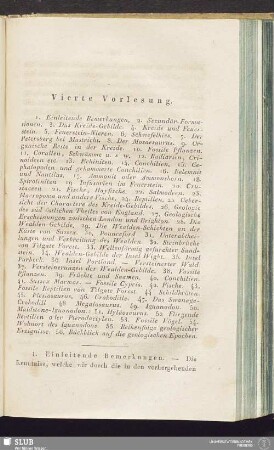 Vierte Vorlesung.
1. Einleitende Bemerkungen. 2. Secundär-Forma-
tionen. 3. Das Kreide-Gebilde. 4. Kreide und Feuer-
stein. 5. Feuerstein-Nieren. 6. Schwefelkies. 7. Der
Petersberg bei Mastricht. 8. Der Mososaurus. 9. Or-
ganische Reste in der Kreide. 10. Fossile Pflanzen.
11. Corallen, Schwämme u. s. w. 12. Radiarien, Cri-
noideen etc. 13. Echiniten. 14. Conchilien. 15. Ce-
phalopoden und gekammerte Conchilien. 16. Belemnit
und Nautilus. 17. Ammonit oder Ammonshorn. 18.
Spiroliniten. 19. Infusorien im Feuerstein. 20. Cru-
staceen. 21. Fische; Hayfische. 22. Salmoniden. 23.
Macropoma und andere Fische. 24. Reptilien. 25. Ueber-
sicht der Charaktere des Kreide-Gebildes. 26. Geologie
des süd-östlichen Theiles von England. 27. Geologische
Erscheinungen zwischen London und Brighton. 28. Die
Wealden-Gebilde. 29. Die Wealden-Schichten an der
Karte von Sussex. 30. Pounceford. 31. Unterabthei-
lungen und Verbreitung des Wealden. 32. Steinbrüche
von Tilgate Forest. 33. Wellenförmig gefurchter Sand-
stein. 34. Wealden-Gebilde der Insel Wight. 35. Insel
Purbeck. 36. Insel Portland. — Versteinerter Wald.
37. Versteinerungen der Wealden-Gebilde. 38. Fossile
Pflanzen. 39. Palmen und Saamen. 40. Conchilien.
41. Sussex Marmor. — Fossile Cypris. 42. Fische. 43.
Fossile Reptilien von Tilgate Forest. 44. Schildkröten.
45. Plesiosaurus. 46. Crokodile. 47. Das Swanage-
Crokodil. 48. Megalosaurus. 49. Iguanodon. 50.
Maidstone-Iguanodon. 51. Hylaeosaurus. 52. Fliegende
Reptilien oder Pterodactylen. 53. Fossile Vögel. 54.
Wohnort des Iguanodons. 55. Reihenfolge geologischer
Ereignisse. 56. Rückblick auf die geologischen Epochen.
1. Einleitende Bemerkungen. — Die
Kenntniss, welche wir durch die in den vorhergehenden
SLUB
Wir führen Wissen.